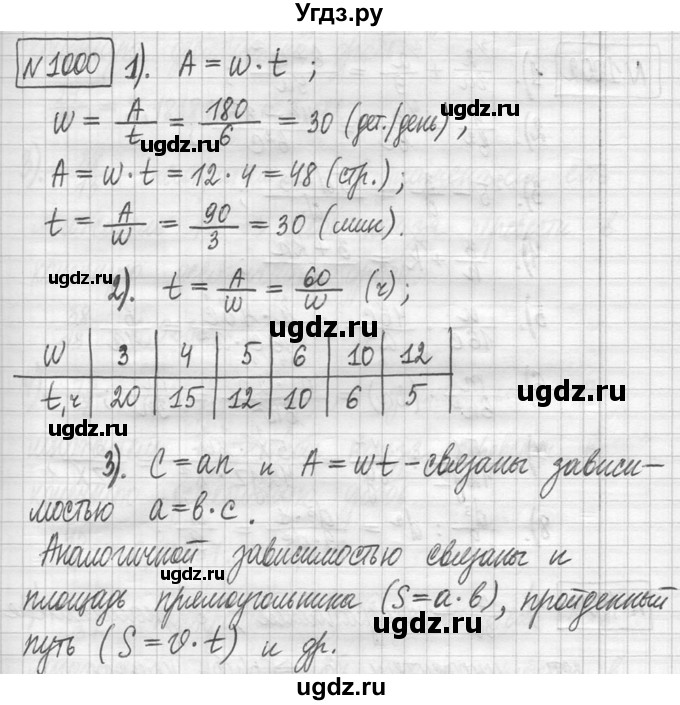 Угдз.ру
N1000 1). A = w · t ;
w = A/t = 180/6 = 30 (дет./день) ;
ugdz.ru
A = w · t = 12 · 4 = 48 (стр.) ;
t = A/w = 90/3 = 30 (мин).
ugdz.ru ugdz.ru
2). t = A/w = 60/w (ч) ;
ugdz.ru
w | 3 | 4 | 5 | 6 | 10 | 12
t, ч | 20 | 15 | 12 | 10 | 6 | 5
ugdz.ru
ugdz.ru ugdz.ru
3). C = an и A = wt – связаны зависи-
мостью a = b · c .
Аналогичной зависимостью связаны и
ugdz.ru
площадь прямоугольника (S = a · b), пройденный
ugdz.ru
путь (S = v · t) и др.
ugdz.ru